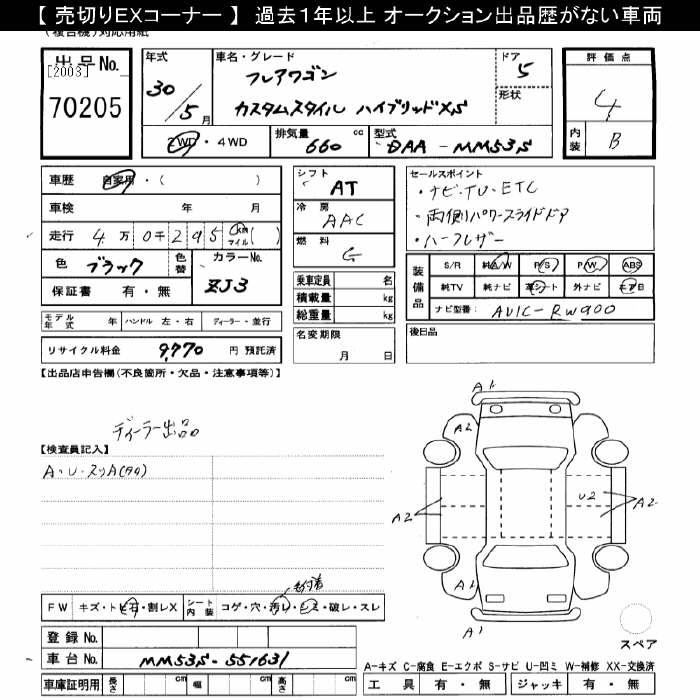 【 売切りEXコーナー 】 過去1年以上 オークション出品歴がない車両
(複合機)対応用紙
出品No.
[2003]
70205
年式
30/5月
車名・グレード
フレアワゴン
カスタムスタイル ハイブリッドXS
ドア
5
形状
評価点
4
内装
B
2WD・4WD
排気量 660 cc
型式 DAA-MM53S
車歴 自家用・( )
車検 年 月
走行 4万0千295 km マイル( )
色 ブラック
色替
カラーNo.
ZJ3
保証書 有・無
シフト
AT
冷房
AAC
燃料
G
乗車定員 名
積載量 kg
総重量 kg
セールスポイント
・ナビ・TV・ETC
・両側パワースライドドア
・ハーフレザー
装備品
S/R 純A/W P/S P/W ABS
純TV 純ナビ 革シート 外ナビ エアB
ナビ型番: AVIC-RW900
モデル年式 年 ハンドル 左・右 ディーラー・並行
リサイクル料金 9,770 円 預託済
名変期限
月 日
後日品
【出品店申告欄(不良箇所・欠品・注意事項等)】
ディーラー出品
【検査員記入】
A・U・スリA(タタ)
A1
A2
A2
U2
A2
A2
A1
FW キズ・トビ石・割レX
シート内装 コゲ・穴・汚レ・シミ・破レ・スレ
登録No.
車台No. MM53S-551631
車庫証明用 長さ cm 幅 cm 高さ cm
スペア
A-キズ C-腐食 E-エクボ S-サビ U-凹ミ W-補修 XX-交換済
工具 有・無 ジャッキ 有・無